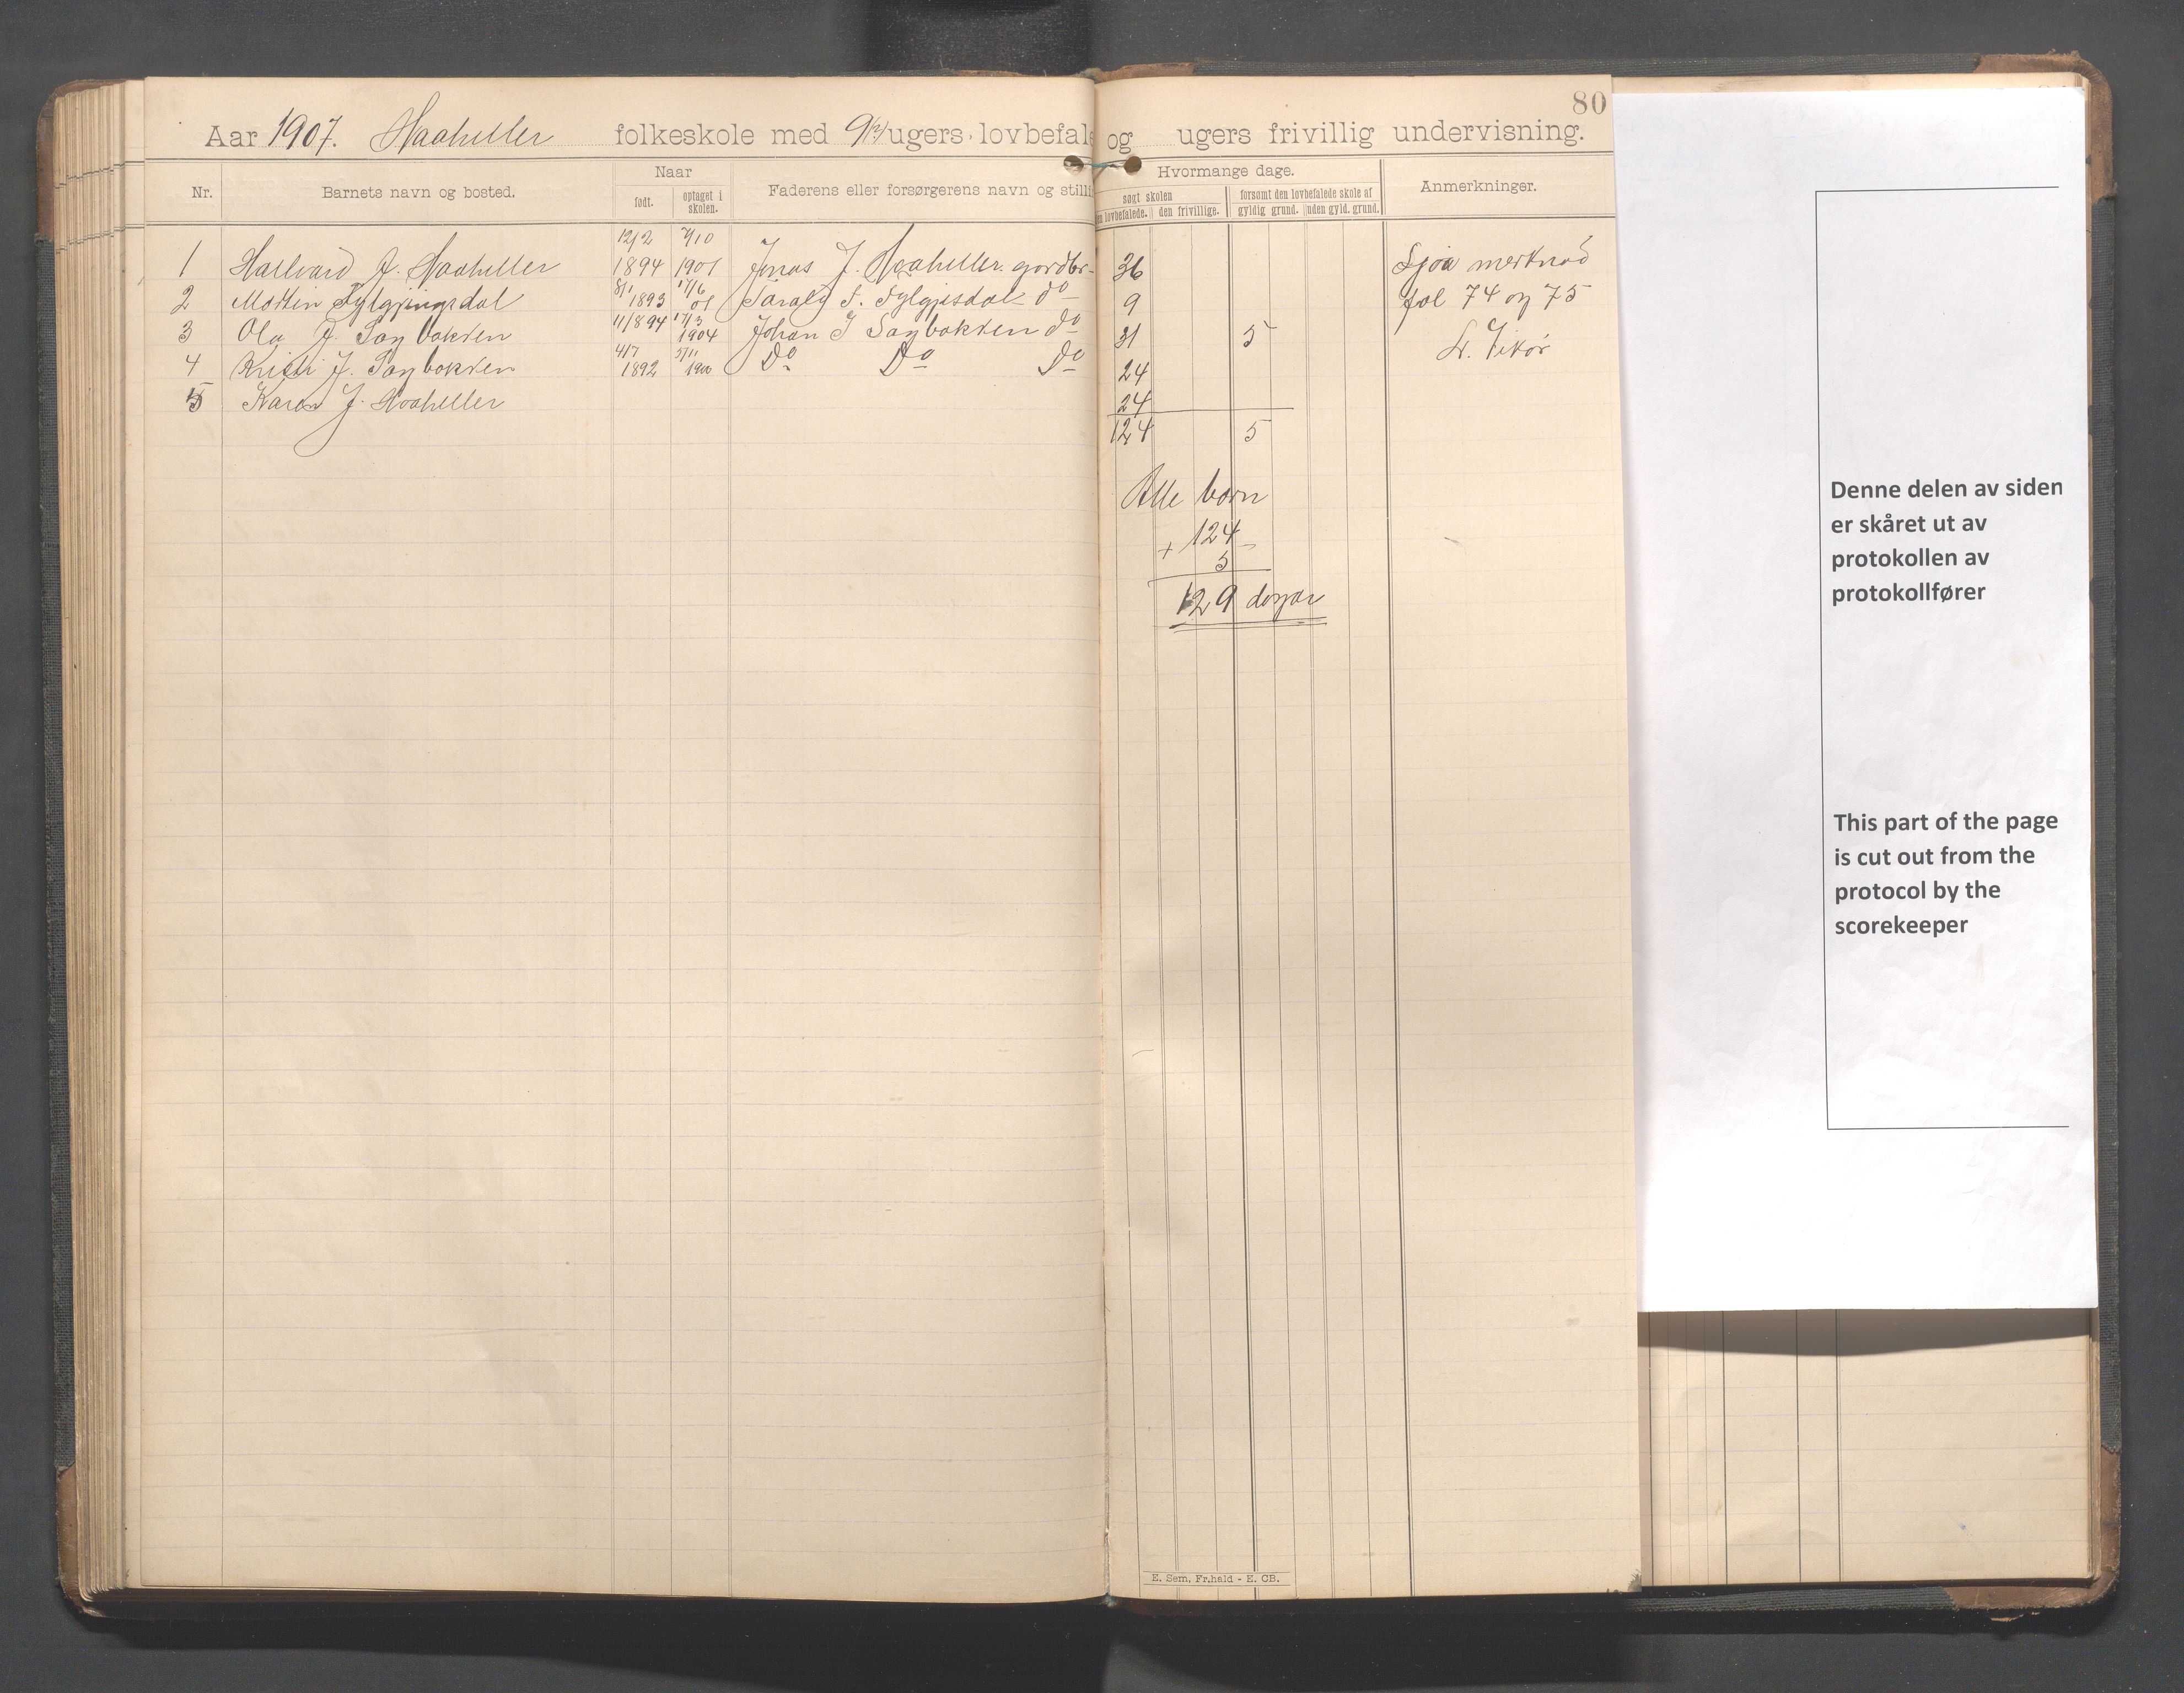 80
Aar 1907. Haaheller folkeskole med 9 ugers lovbefal og ugers frivillig undervisning.
Nr. Barnets navn og bosted. Naar Faderens eller forsørgerens navn og stilli Hvormange dage. Anmerkninger.
født. optaget i skolen. søgt skolen forsømt den lovbefalede skole af
en lovbefalede. den frivillige. gyldig grund. uden gyld. grund.
12/2 7/10
1 Hallvard J. Haaheller 1894 1901 Jonas J. Haaheller gardbr- 36 Sjaa merknad
8/1 17/6
2 Martin Fylgjingsdal 1893 01 Taralg S. Fylgjesdal do 9 fol 74 og 75
11/8 94 17/3
3 Ola J. Sagbakken 1904 Johan J Sagbakken do 31 5 L. Vikør
4/7 5/11
4 Kristi J. Sagbakken 1892 1900 Do Do Do 24
5 Karen J. Haaheller 24
124 5
Alle born
124
+ 5
129 dagar
E. Sem, Fr.hald - E. CB.
Denne delen av siden
er skåret ut av
protokollen av
protokollfører
This part of the page
is cut out from the
protocol by the
scorekeeper